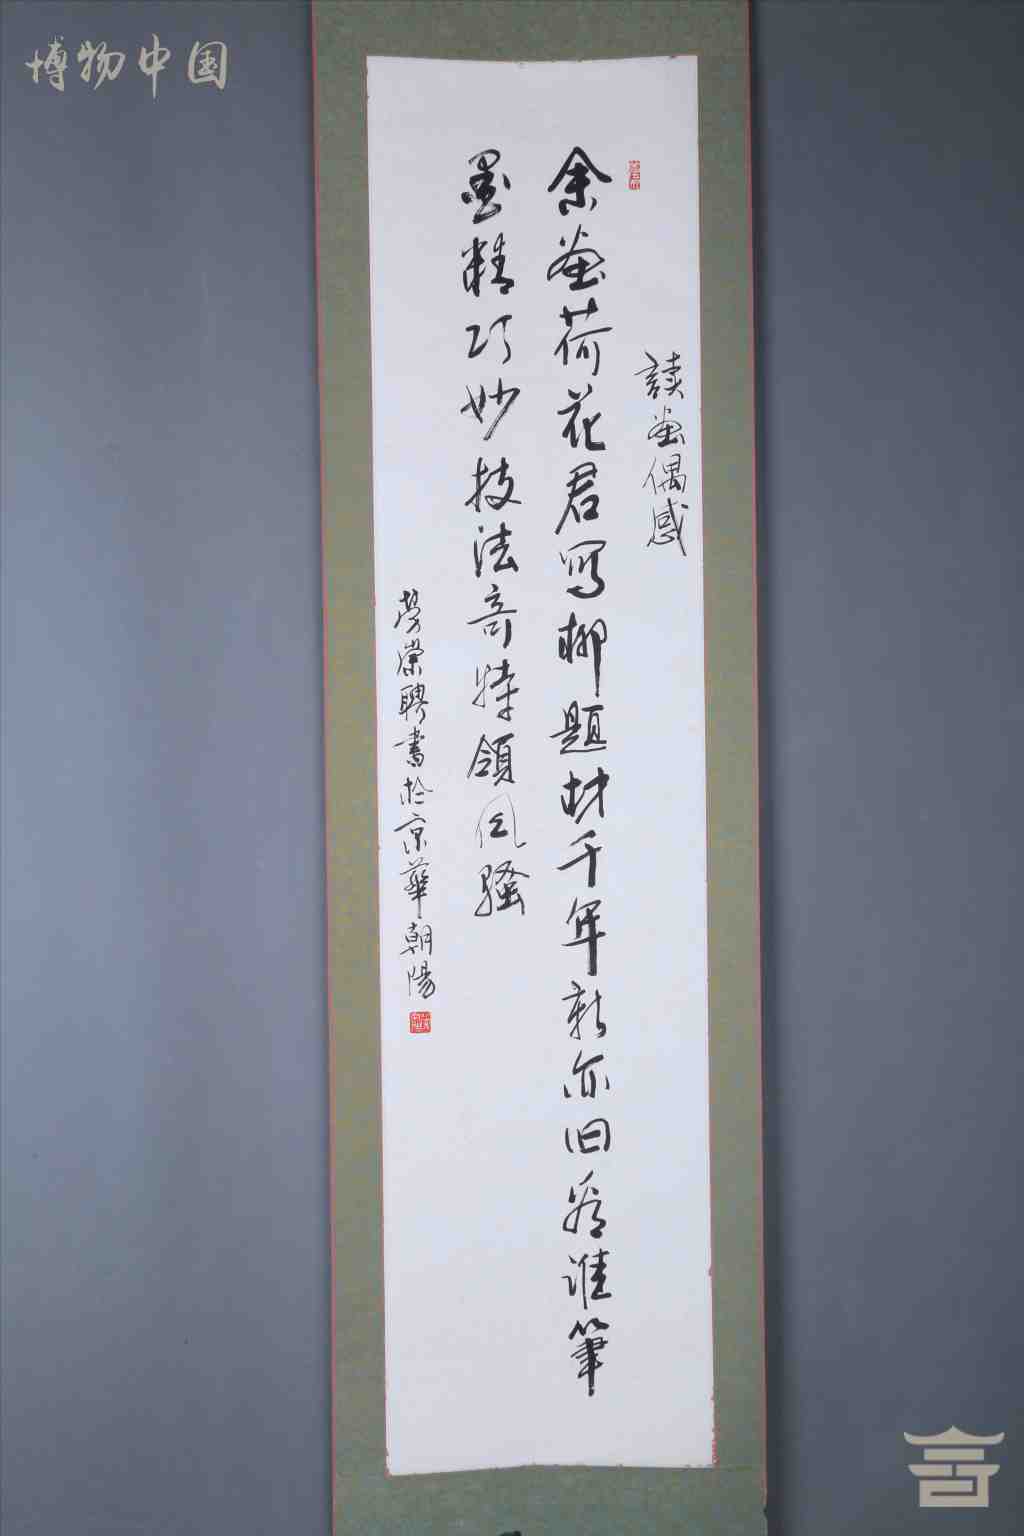 博物中国
讀画偶感
余画荷花君寫柳題材千年新亦旧看谁筆
墨精巧妙技法奇特領风騷
勞崇聘書於京華朝陽